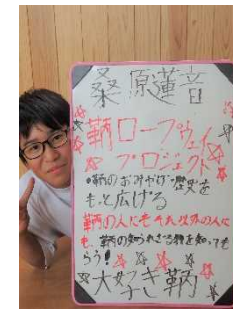 桑原蓮音
鞆ロープウェイ
プロジェクト
・鞆のおみやげ・歴史を
もっと広げる
鞆の人にもそれ以外の人に
も、鞆の知られざる魅を知っても
らう!
大好き鞆